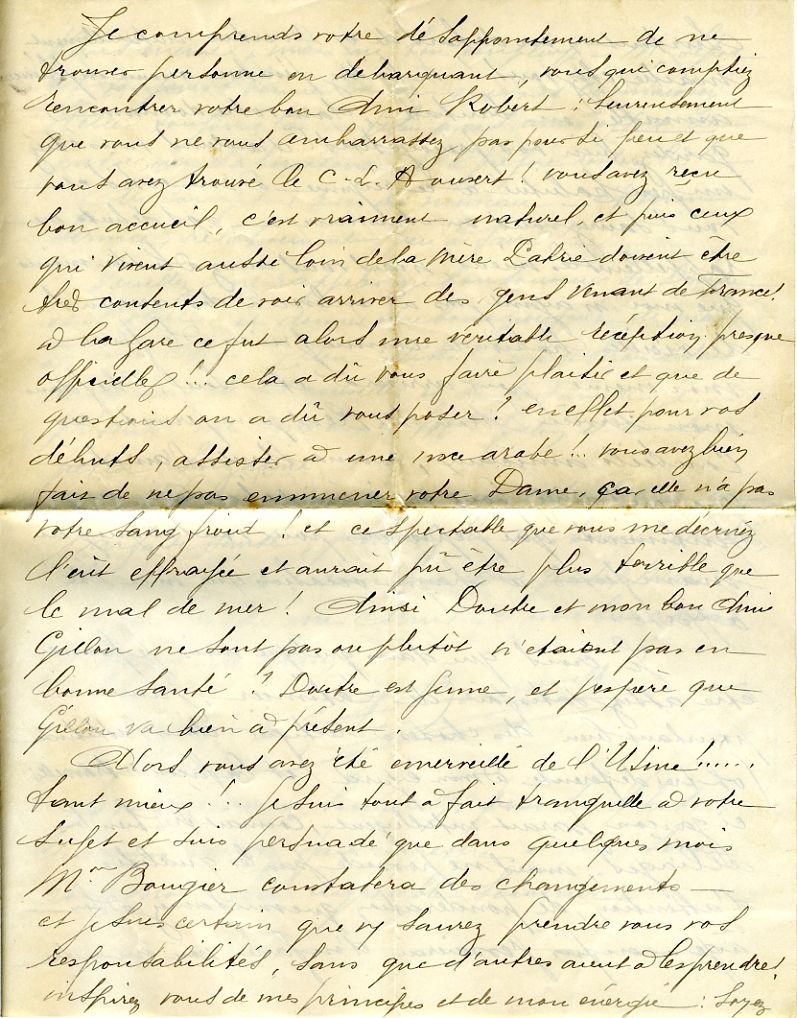 Je comprends votre désappointement de ne
trouver personne en debarquant, vous qui comptiez
rencontrer votre bon Ami Robert : heureusement
que vous ne vous embarrassez pas pour si peu et que
vous avez trouvé le C. L. A ouvert ! vous avez reçu
bon accueil, c'est vraiment naturel, et puis ceux
qui vivent aussi loin de la Mère Patrie doivent être
très contents de voir arriver des gens venant de France !
à la Gare ce fut alors une véritable réception presque
officielle !... cela a dû vous faire plaisir et que de
questions on a dû vous poser ? en effet pour vos
débuts, assister à une noce arabe !.. vous avez bien
fait de ne pas emmener votre Dame, ça, elle n'a pas
votre sang froid ! et ce spectable que vous me décrivez
l'eût effrayée et aurait pû être plus terrible que
le mal de mer ! Ainsi Doutre et mon bon Ami
Gillon ne sont pas ou plutôt n'étaient pas en
bonne santé ? Doutre est jeune, et j'espère que
Gillon va bien à présent.
Alors vous avez été emerveillé de l'Usine !......
tant mieux !.. je suis tout à fait tranquille à votre
sujet et suis persuadé que dans quelques mois
Mr Bougier constatera des changements —
et je suis certain que vs saurez prendre vous vos
responsabilités, sans que d'autres aient à les prendre !
inspirez vous de mes principes et de mon énergie : Soyez